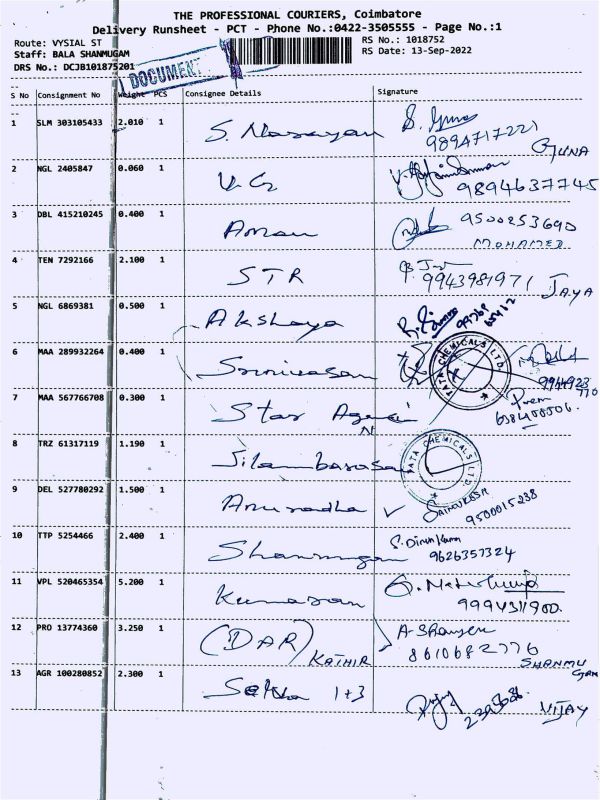 THE PROFESSIONAL COURIERS, Coimbatore
Delivery Runsheet - PCT - Phone No.:0422-3505555 - Page No.:1
Route: VYSIAL ST
RS No.: 1018752
Staff: BALA SHANMUGAM
RS Date: 13-Sep-2022
DRS No.: DCJB101875201
DOCUMENT
S No Consignment No Weight PCS Consignee Details Signature
1 SLM 303105433 2.010 1 S. Narayan
9894717221
GUNA
2 NGL 2405847 0.060 1 V. G
9894637745
3 DBL 415210245 0.400 1 Aman
9500253690
MOHAMED
4 TEN 7292166 2.100 1 STR
9943981971 JAYA
5 NGL 6869381 0.500 1 Akshaya
99768
65912
6 MAA 289932264 0.400 1 Srinivasan
TATA CHEMICALS LTD.
9944923
770
7 MAA 566766708 0.300 1 Star Agencies
N
Prem
8 TRZ 61317119 1.190 1 Silambarasan
TATA CHEMICALS LTD.
9 DEL 527780292 1.500 1 Anuradha ✓
9500015238
10 TTP 5254466 2.400 1 Shanmugam
S. Dinesh Kumar
9626357324
11 VPL 520465354 5.200 1 Kumaran
9994311900.
12 PRO 13774360 3.250 1 (DAR)
KATHIR
8610682776
SHANMUGAM
13 AGR 100280852 2.300 1 1+3
VIJAY